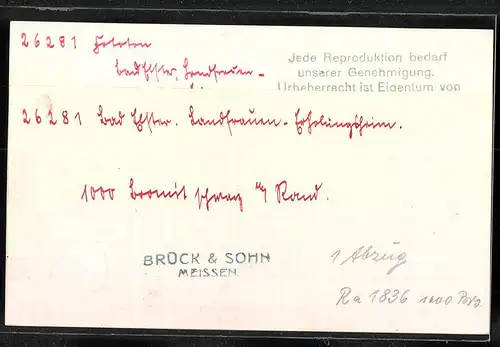 26281
Bad Elster, Landfrauen-
Jede Reproduktion bedarf
unserer Genehmigung.
Urheberrecht ist Eigentum von
26281 Bad Elster. Landfrauen-Erholungsheim.
1000 Bromit schwarz m/ Rand.
BRÜCK & SOHN
MEISSEN
1 Abzug
Ra 1836 1000